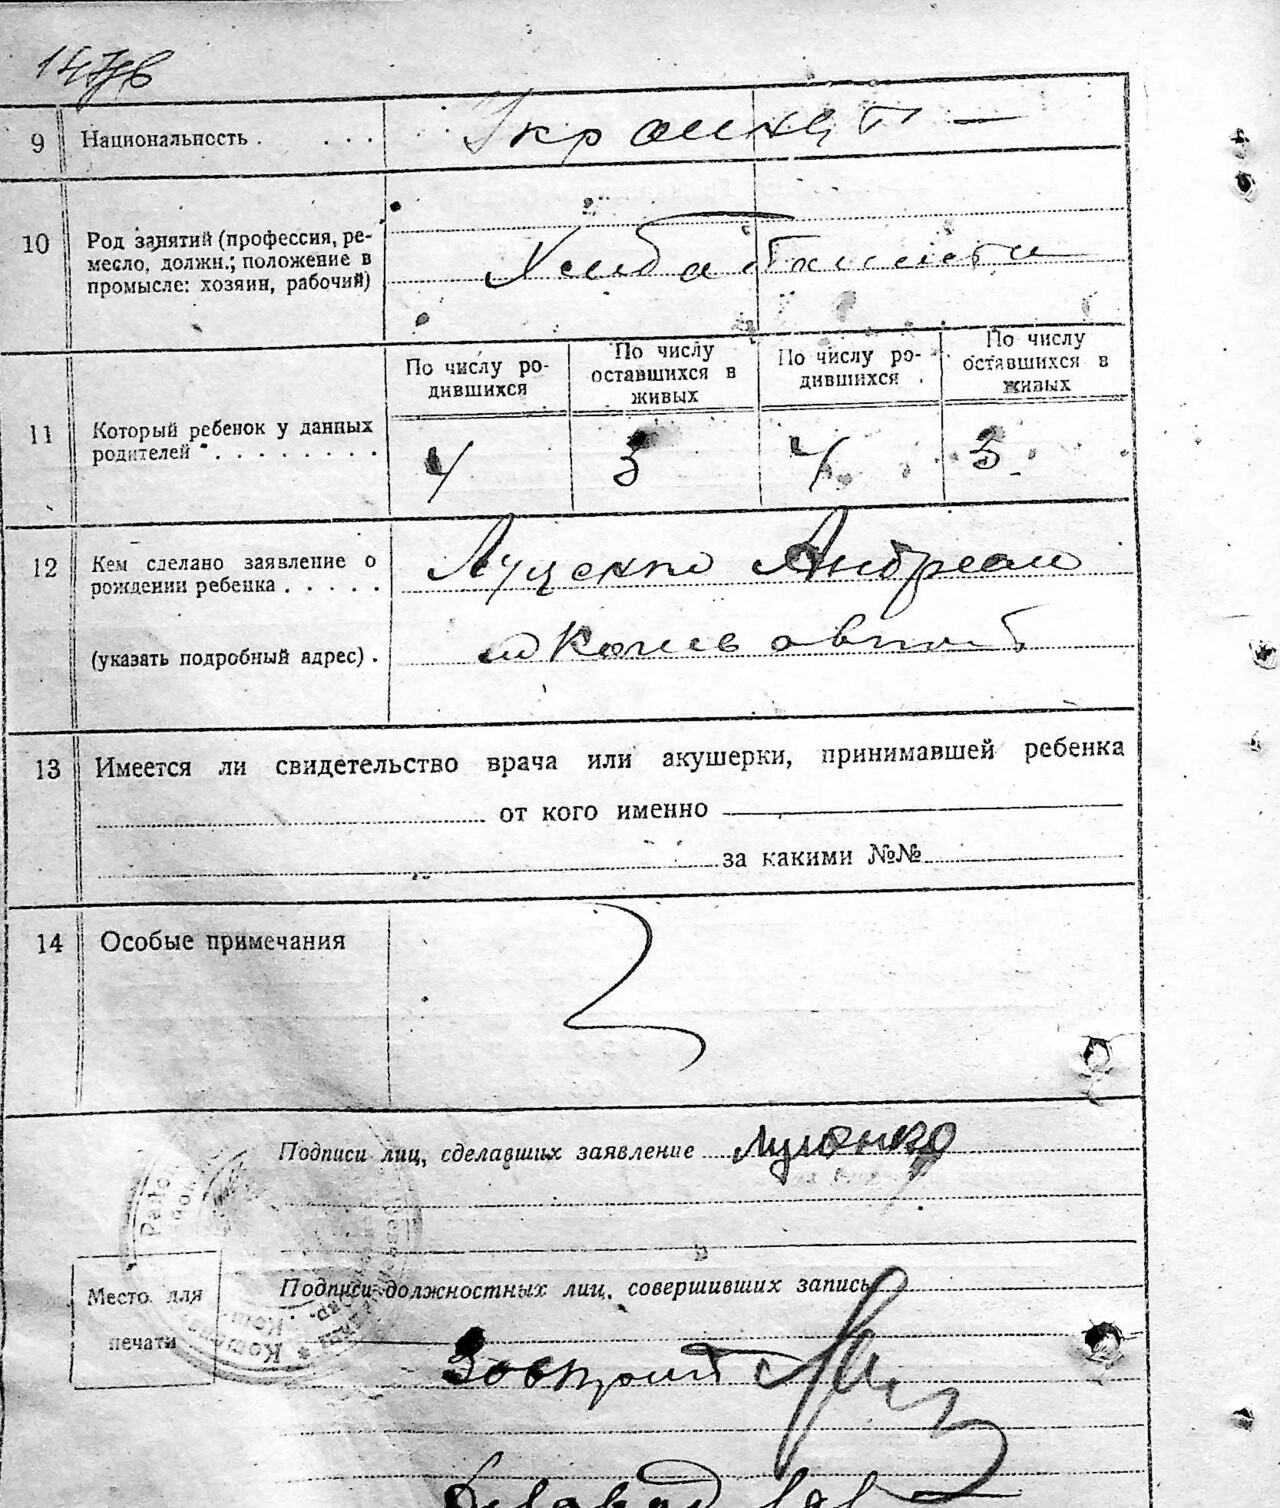 9 Национальность . . . .
10 Род занятий (профессия, ре-
месло, должн.; положение в
промысле: хозяин, рабочий)
По числу ро-
дившихся
По числу
оставшихся в
живых
По числу ро-
дившихся
По числу
оставшихся в
живых
11 Который ребенок у данных
родителей . . . . . . . .
4 3 4 3
12 Кем сделано заявление о
рождении ребенка . . . . .
Луценко Андреем
(указать подробный адрес) .
13 Имеется ли свидетельство врача или акушерки, принимавшей ребенка
от кого именно
за какими №№
14 Особые примечания
Подписи лиц, сделавших заявление
Место для
печати
Подписи должностных лиц, совершивших запись